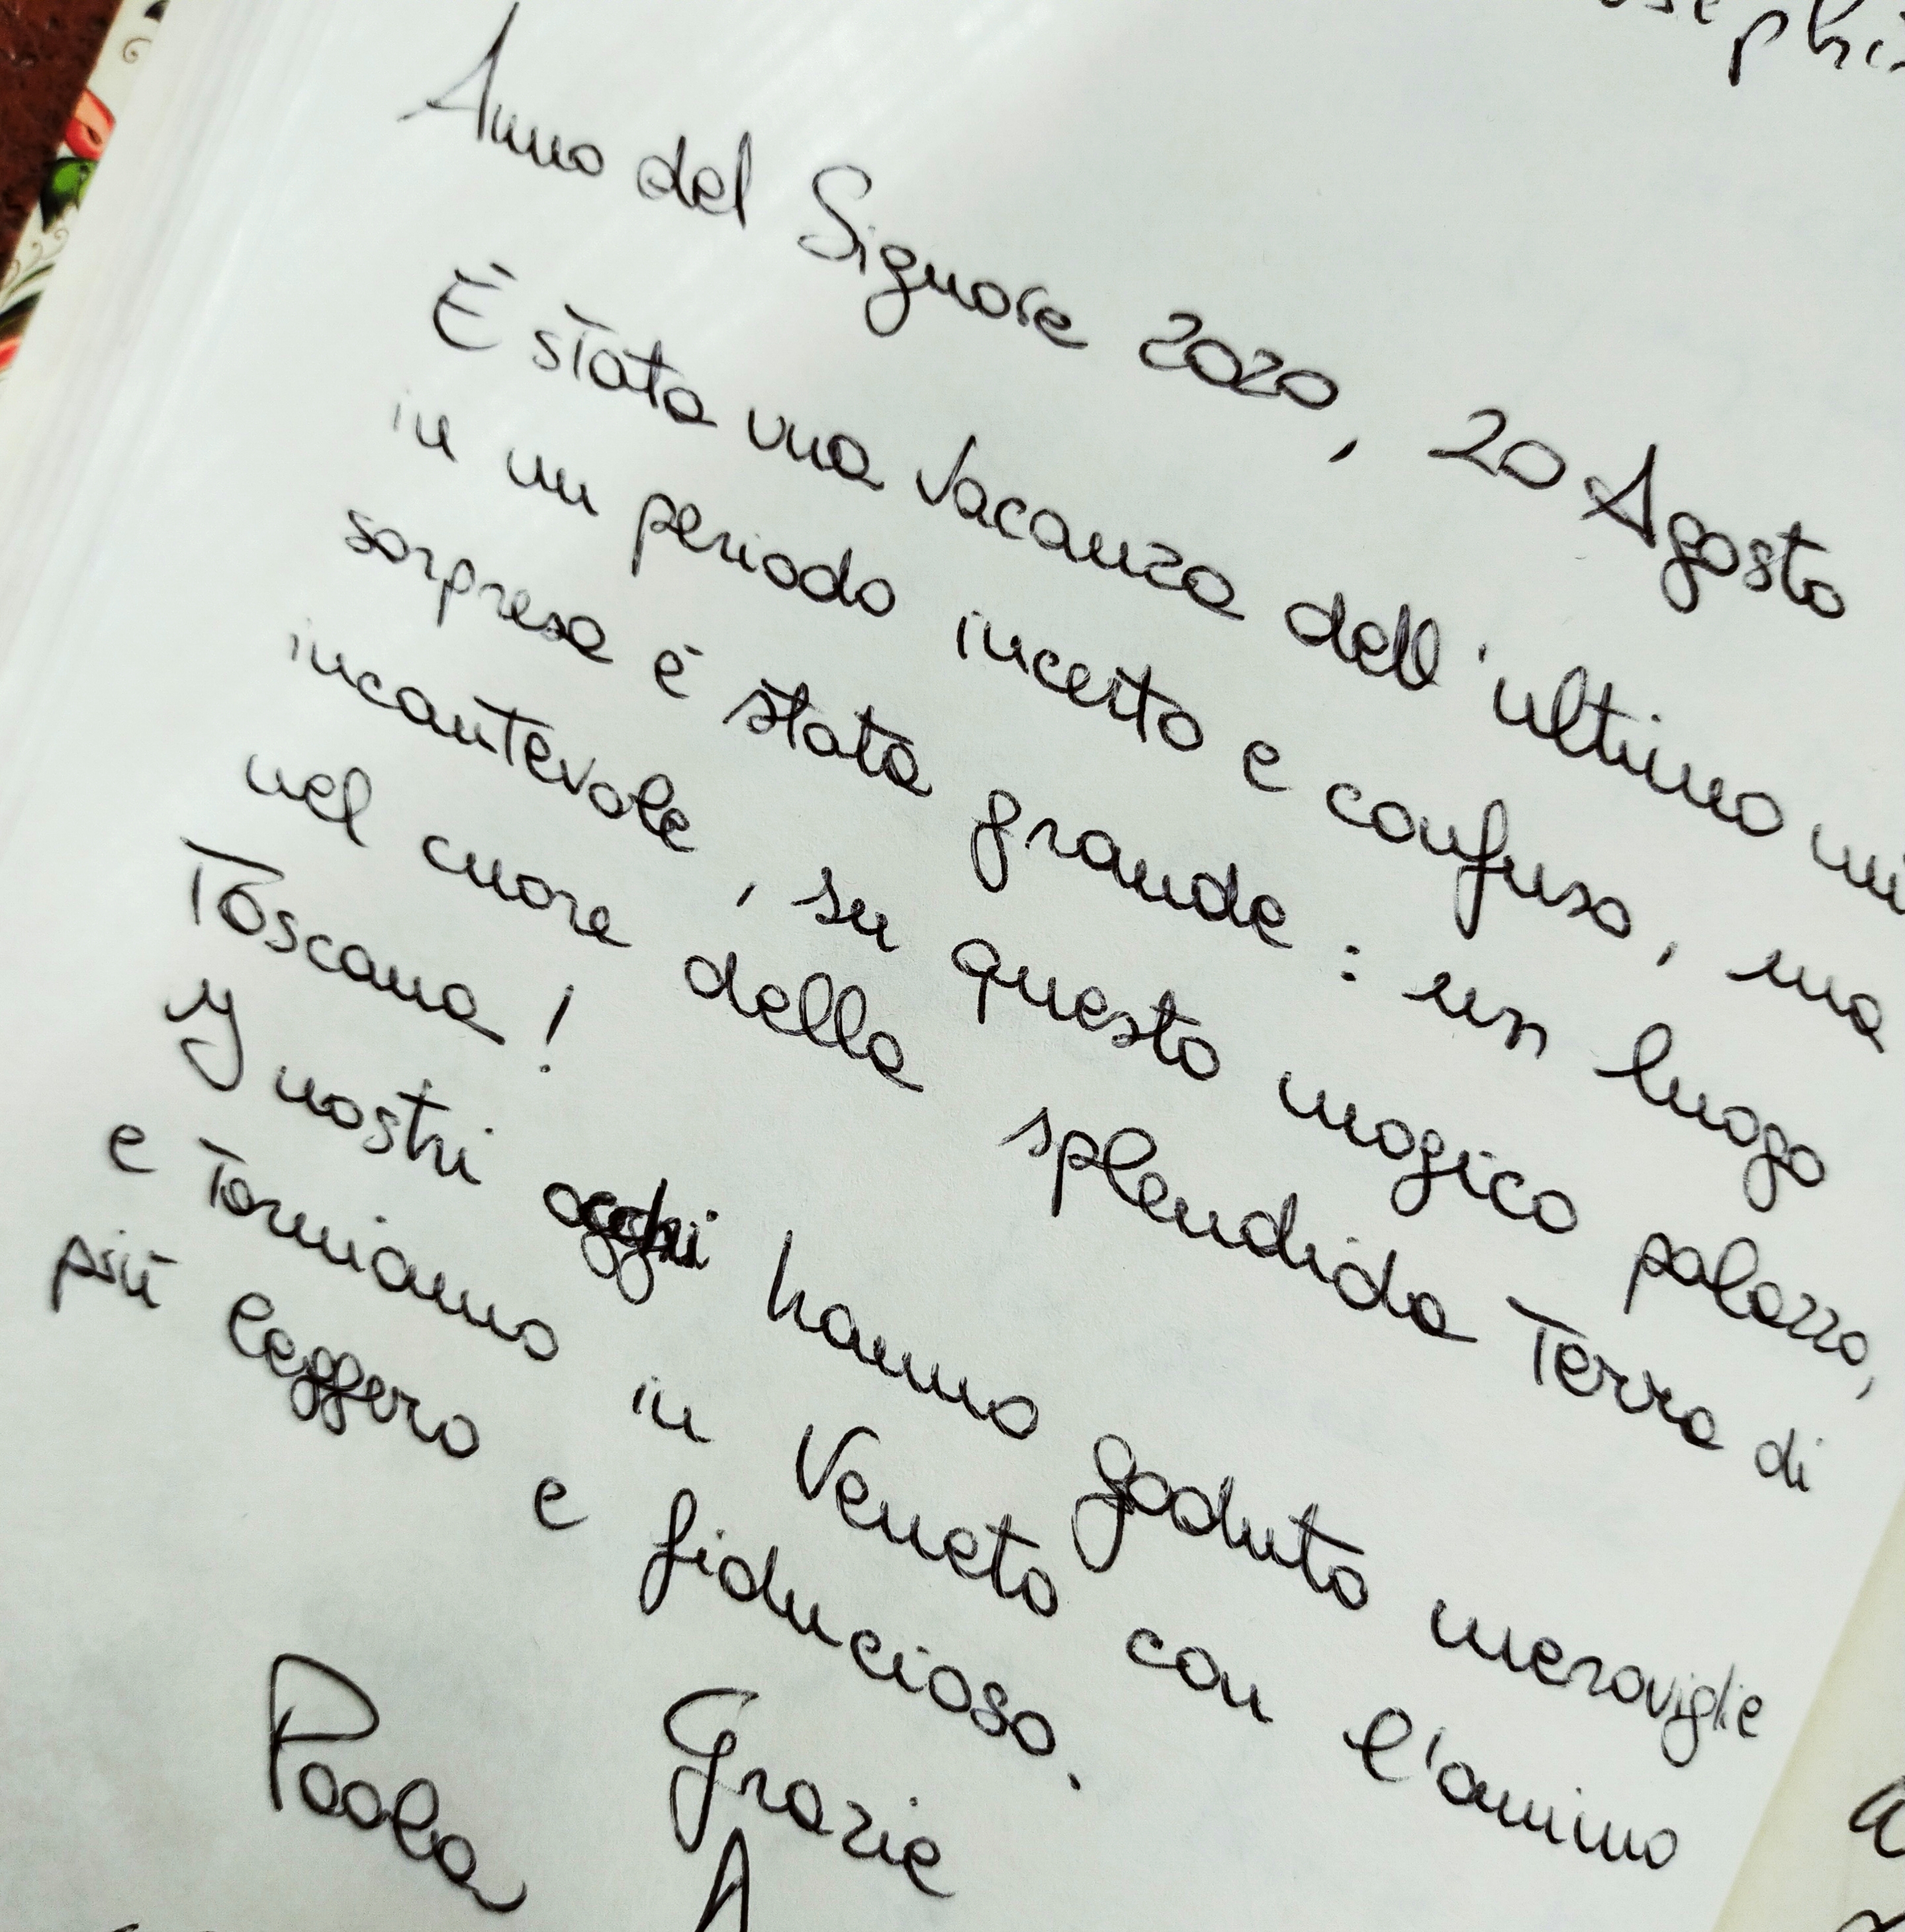 Anno del Signore 2020, 20 Agosto
È stata una vacanza dell'ultimo
in un periodo incerto e confuso, ma
sorpresa è stata grande: un luogo
incantevole, su questo magico palazzo,
nel cuore della splendida Terra di
Toscana!
I nostri occhi hanno goduto meraviglie
e torniamo in Veneto con l'animo
più leggero e fiducioso.
Grazie
Paola